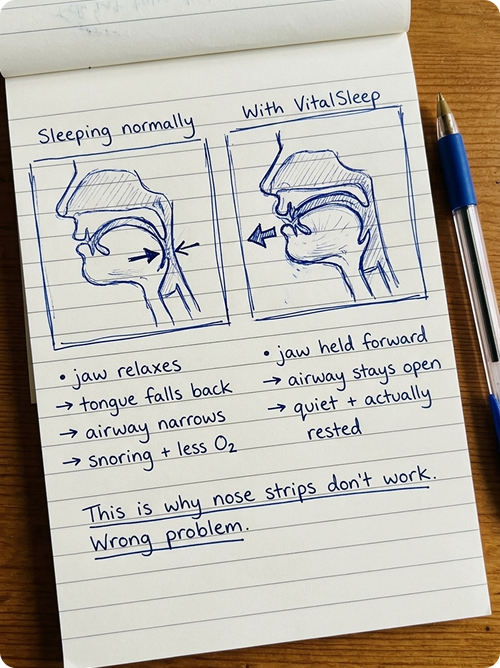 Sleeping normally
With VitalSleep
• jaw relaxes
→ tongue falls back
→ airway narrows
→ snoring + less O₂
• jaw held forward
→ airway stays open
→ quiet + actually
rested
This is why nose strips don't work.
Wrong problem.